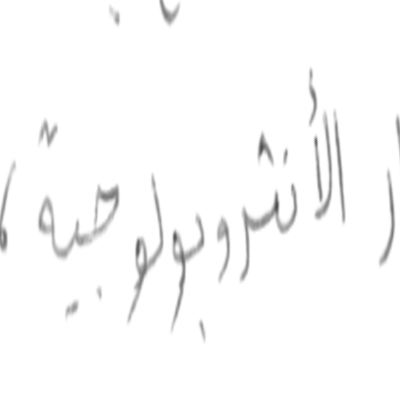 الأنثروبولوجية،